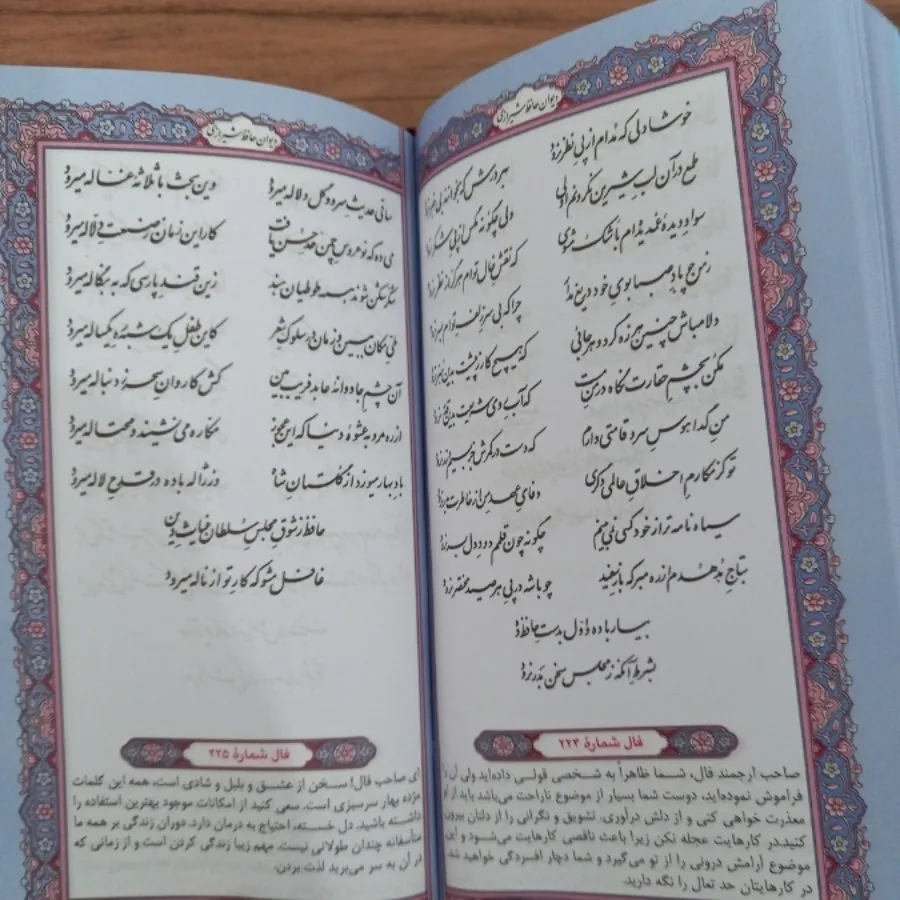 دیوان حافظ شیرازی
خوشا دلی که مدام از پی نظر نرود
طمع در آن لب شیرین نکردنم اولی
ولی چگونه مگس از پی شکر نرود
سواد دیده غمدیده‌ام به اشک مشوی
که نقش خال توام هرگز از نظر نرود
ز من چو باد صبا بوی خود دریغ مدار
چرا که بی سر زلف توام بسر نرود
دلا مباش چنین هرزه گرد و هرجایی
که هیچ کار ز پیشت بدین هنر نرود
مکن بچشم حقارت نگاه در من مست
که آب روی شریعت بدین قدر نرود
من گدا هوس سرو قامتی دارم
که دست در کمرش جز بسیم و زر نرود
تو کز مکارم اخلاق عالمی دگری
وفای عهد من از خاطرت بدر نرود
سیاه نامه‌تر از خود کسی نمی‌بینم
چگونه چون قلمم دود دل بسر نرود
بتاج هدهدم از ره مبر که باز سفید
چو باشه در پی هر صید مختصر نرود
بیار باده و اول بدست حافظ ده
بشرط آنکه ز مجلس سخن بدر نرود
فال شمارهٔ ۲۲۴
صاحب ارجمند فال، شما ظاهراً به شخصی قولی داده‌اید ولی آن را
فراموش نموده‌اید، دوست شما بسیار از موضوع ناراحت می‌باشد باید از او
معذرت خواهی کنی و از دلش درآوری. تشویق و نگرانی را از دلتان بیرون
کنید.در کارهایت عجله نکن زیرا باعث ناقصی کارهایت می‌شود و این
موضوع آرامش درونی را از تو می‌گیرد و شما دچار افسردگی خواهید شد.
در کارهایتان حد تعال را نگه دارید.
دیوان حافظ شیرازی
ساقی حدیث سرو و گل و لاله میرود
وین بحث با ثلاثهٔ غساله میرود
می ده که نوعروس چمن حد حسن یافت
کار این زمان ز صنعت دلاله میرود
شکر شکن شوند همه طوطیان هند
زین قند پارسی که به بنگاله میرود
طی مکان ببین و زمان در سلوک شعر
کاین طفل یک شبه ره یکساله میرود
آن چشم جادوانه عابد فریب بین
کش کاروان سحر ز دنباله میرود
از ره مرو به عشوهٔ دنیا که این عجوز
مکاره می‌نشیند و محتاله میرود
باد بهار میوزد از گلستان شاه
وز ژاله باده در قدح لاله میرود
حافظ ز شوق مجلس سلطان غیاث دین
غافل مشو که کار تو از ناله میرود
فال شمارهٔ ۲۲۵
ای صاحب فال! سخن از عشق و بلبل و شادی است، همه این کلمات
مژده بهار سرسبزی است. سعی کنید از امکانات موجود بهترین استفاده را
داشته باشید. دل خسته، احتیاج به درمان دارد. دوران زندگی بر همه ما
متأسفانه چندان طولانی نیست. مهم زیبا زندگی کردن است و از زمانی که
در آن به سر می‌برید لذت بردن.